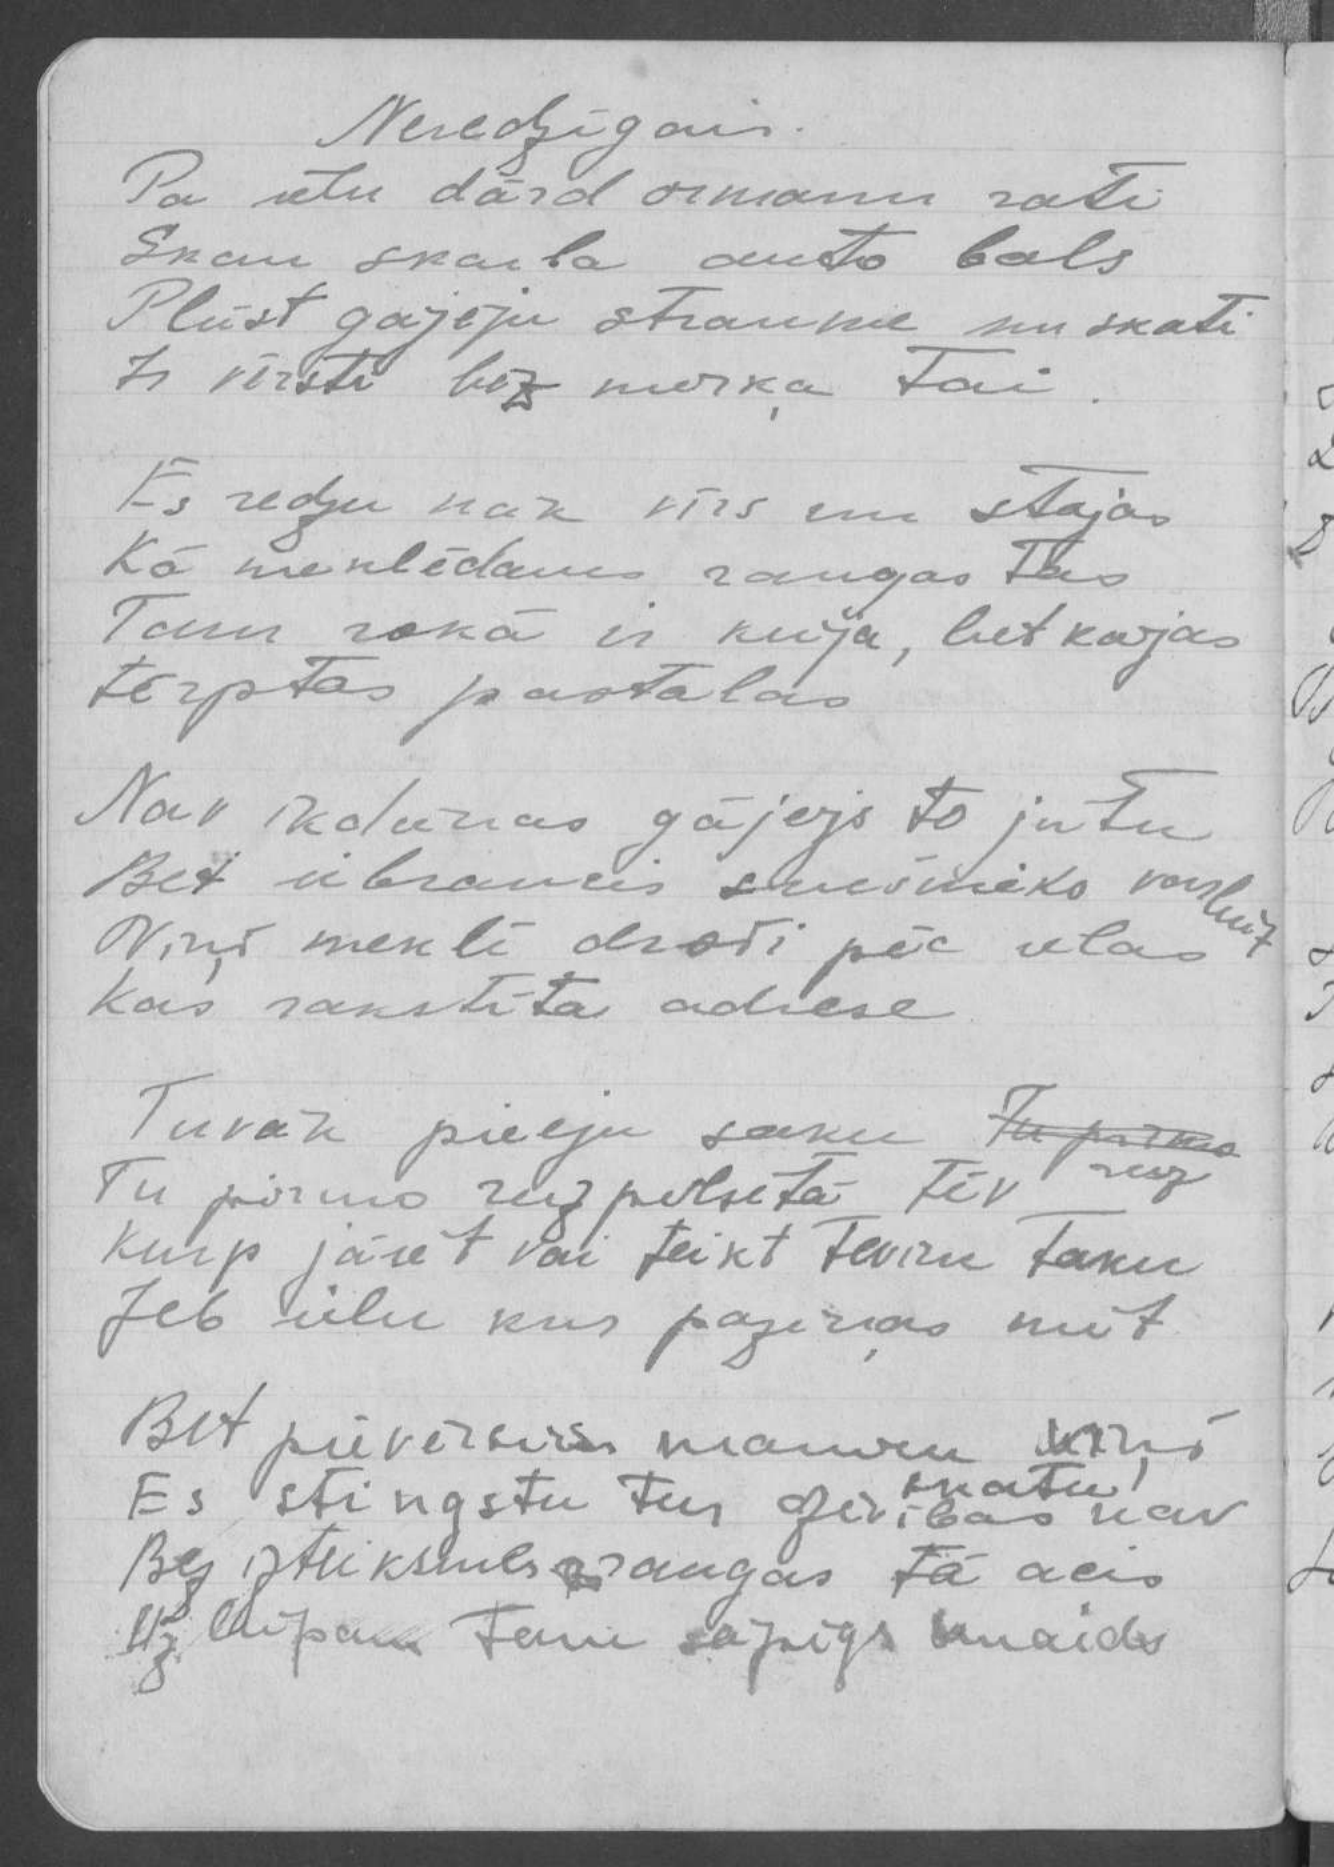 Neredzīgais.
Pa ielu dārd ormanu rati
Skan skarba auto bals
Plūst gājēju straume un skati
Ir vērsti bez mērķa tai.
Es redzu nāk vīrs un stājas
Kā meklēdams raugas tas
Tam rokā ir kūja, bet kājas
tērptas pastalas
Nav ikdienas gājejs to jūtu
Bet iebraucis
Viņš meklē droši pēc ielas
Kas rakstīta adrese
Tuvāk pieeju saku Tu pirmo
Tu pirmo reiz pilsētā tēv
reiz
Kurp jāiet vai teikt tevim taku
Jeb ielu kur paziņas mīt
Bet pievērsis manim viņš
skatu
Es stingstu tur dzīvības nav
Bez izteiksmes raugas tā acis
Uz lūpam tam sāpīgs smaids